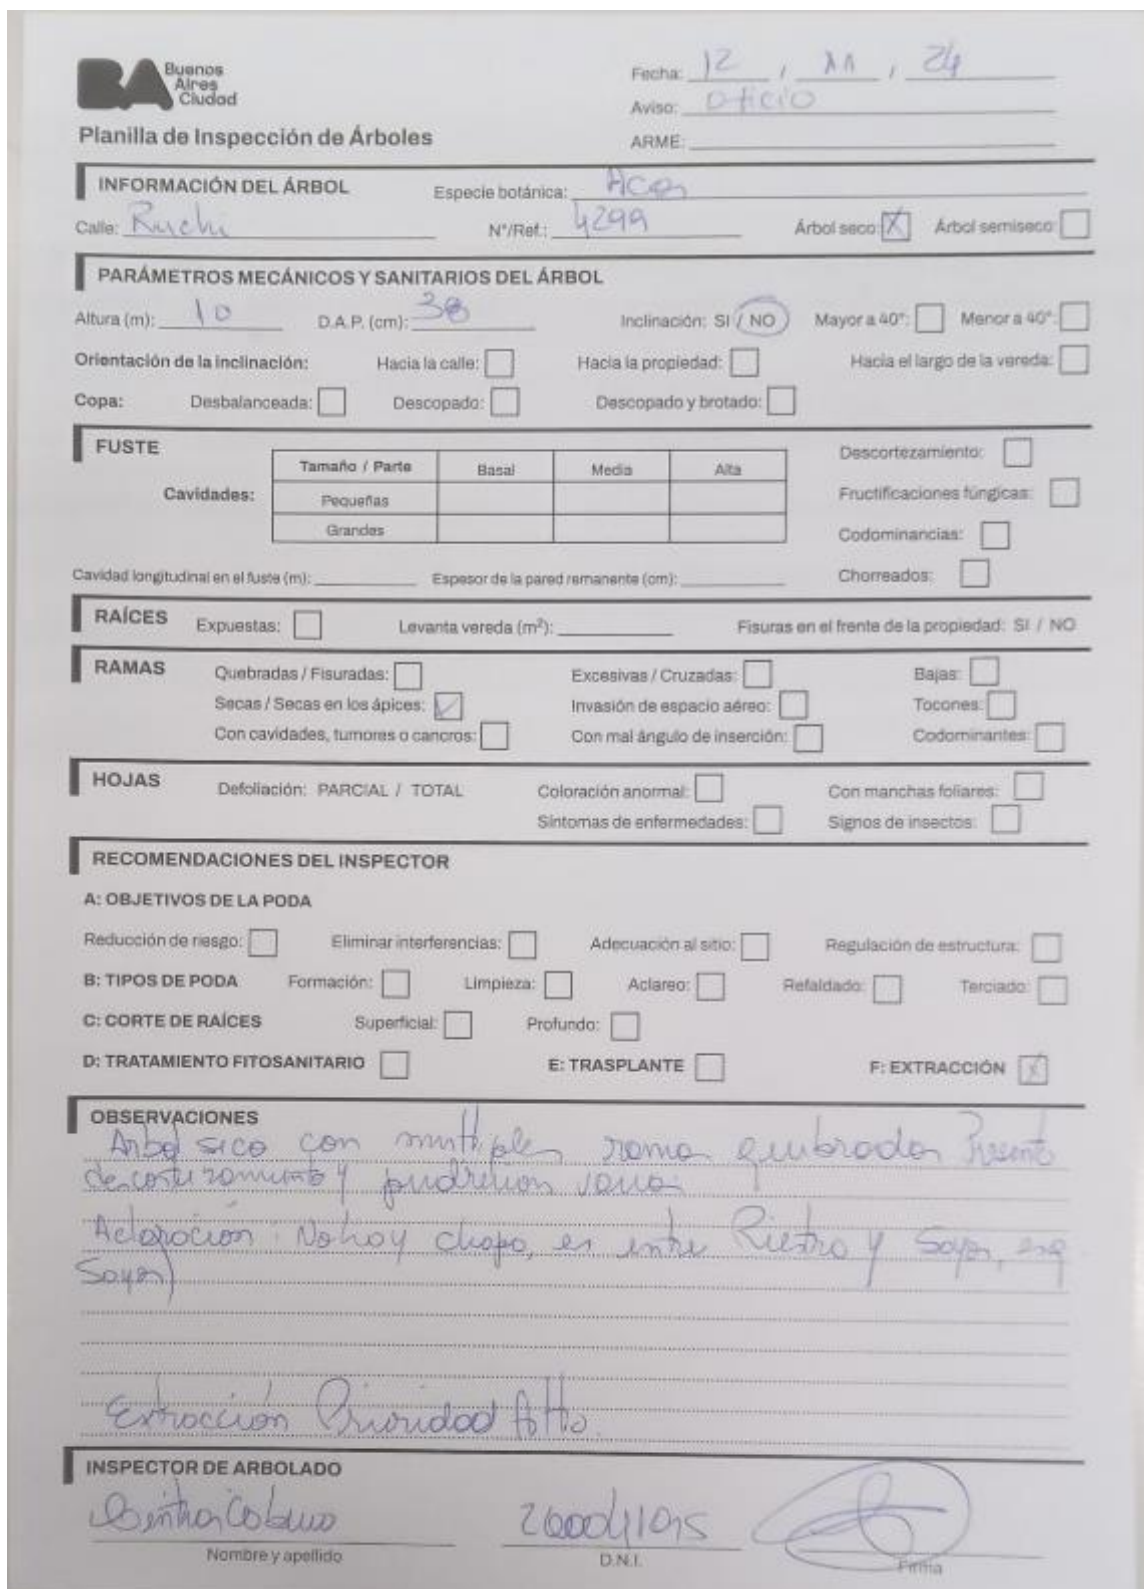 BA Buenos Aires Ciudad
Fecha: 12 / 11 / 24
Aviso: Oficio
Planilla de Inspección de Árboles
ARME:
INFORMACIÓN DEL ÁRBOL Especie botánica: Acer
Calle: N°/Ref.: 4299 Árbol seco: X Árbol semiseco:
PARÁMETROS MECÁNICOS Y SANITARIOS DEL ÁRBOL
Altura (m): 10 D.A.P. (cm): 38 Inclinación: SI / NO Mayor a 40°: Menor a 40°:
Orientación de la inclinación: Hacia la calle: Hacia la propiedad: Hacia el largo de la vereda:
Copa: Desbalanceada: Descopado: Descopado y brotado:
FUSTE
Descortezamiento:
Tamaño / Parte Basal Media Alta
Cavidades: Pequeñas
Fructificaciones fúngicas:
Grandes
Codominancias:
Cavidad longitudinal en el fuste (m): Espesor de la pared remanente (cm): Chorreados:
RAÍCES Expuestas: Levanta vereda (m²): Fisuras en el frente de la propiedad: SI / NO
RAMAS Quebradas / Fisuradas: Excesivas / Cruzadas: Bajas:
Secas / Secas en los ápices: ✓ Invasión de espacio aéreo: Tocones:
Con cavidades, tumores o cancros: Con mal ángulo de inserción: Codominantes:
HOJAS Defoliación: PARCIAL / TOTAL Coloración anormal: Con manchas foliares:
Síntomas de enfermedades: Signos de insectos:
RECOMENDACIONES DEL INSPECTOR
A: OBJETIVOS DE LA PODA
Reducción de riesgo: Eliminar interferencias: Adecuación al sitio: Regulación de estructura:
B: TIPOS DE PODA Formación: Limpieza: Aclareo: Refaldado: Terciado:
C: CORTE DE RAÍCES Superficial: Profundo:
D: TRATAMIENTO FITOSANITARIO E: TRASPLANTE F: EXTRACCIÓN X
OBSERVACIONES
Arbol seco con multiples ramas quebradas Presenta
descortezamiento y pudrición varias
Aclaración: No hay chapa, es entre Riestra y Sayos, esq
Sayos)
Extracción Prioridad Alta.
INSPECTOR DE ARBOLADO
Nombre y apellido D.N.I. Firma